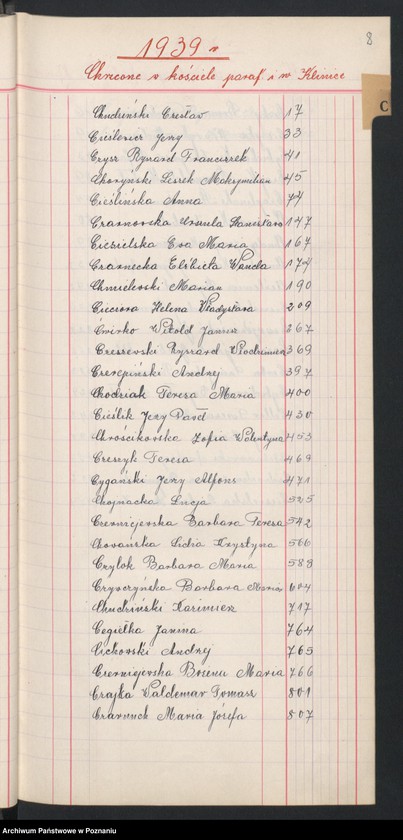 8
1939 r
Chrzcone w kościele paraf. i w Klinice
C
Chudziński Czesław 17
Cieślewicz Jerzy 33
Czysz Ryszard Franciszek 41
Choryński Leszek Maksymilian 45
Cieślińska Anna 74
Czarnowska Urszula Stanisława 147
Ciesielska Ewa Maria 167
Czarnecka Elżbieta Wanda 174
Chmielewski Marian 190
Cieciora Helena Władysława 209
Ćwirko Witold Janusz 267
Czeszewski Ryszard Włodzimierz 369
Czerepiński Andrzej 397
Chodziak Teresa Maria 400
Cieślik Jerzy Paweł 430
Chrościkowska Zofia Walentyna 453
Czeszyk Teresa 469
Cygański Jerzy Alfons 471
Chojnacka Łucja 525
Czerniejewska Barbara Teresa 542
Chovańska Lidia Krystyna 566
Czylok Barbara Maria 583
Barbara Maria 604
Chudziński Kazimierz 717
Cegiełka Janina 764
Cichowski Andrzej 765
Czerniejewska Bożena Maria 766
Czajka Waldemar Tomasz 801
Maria Józefa 807
Archiwum Państwowe w Poznaniu